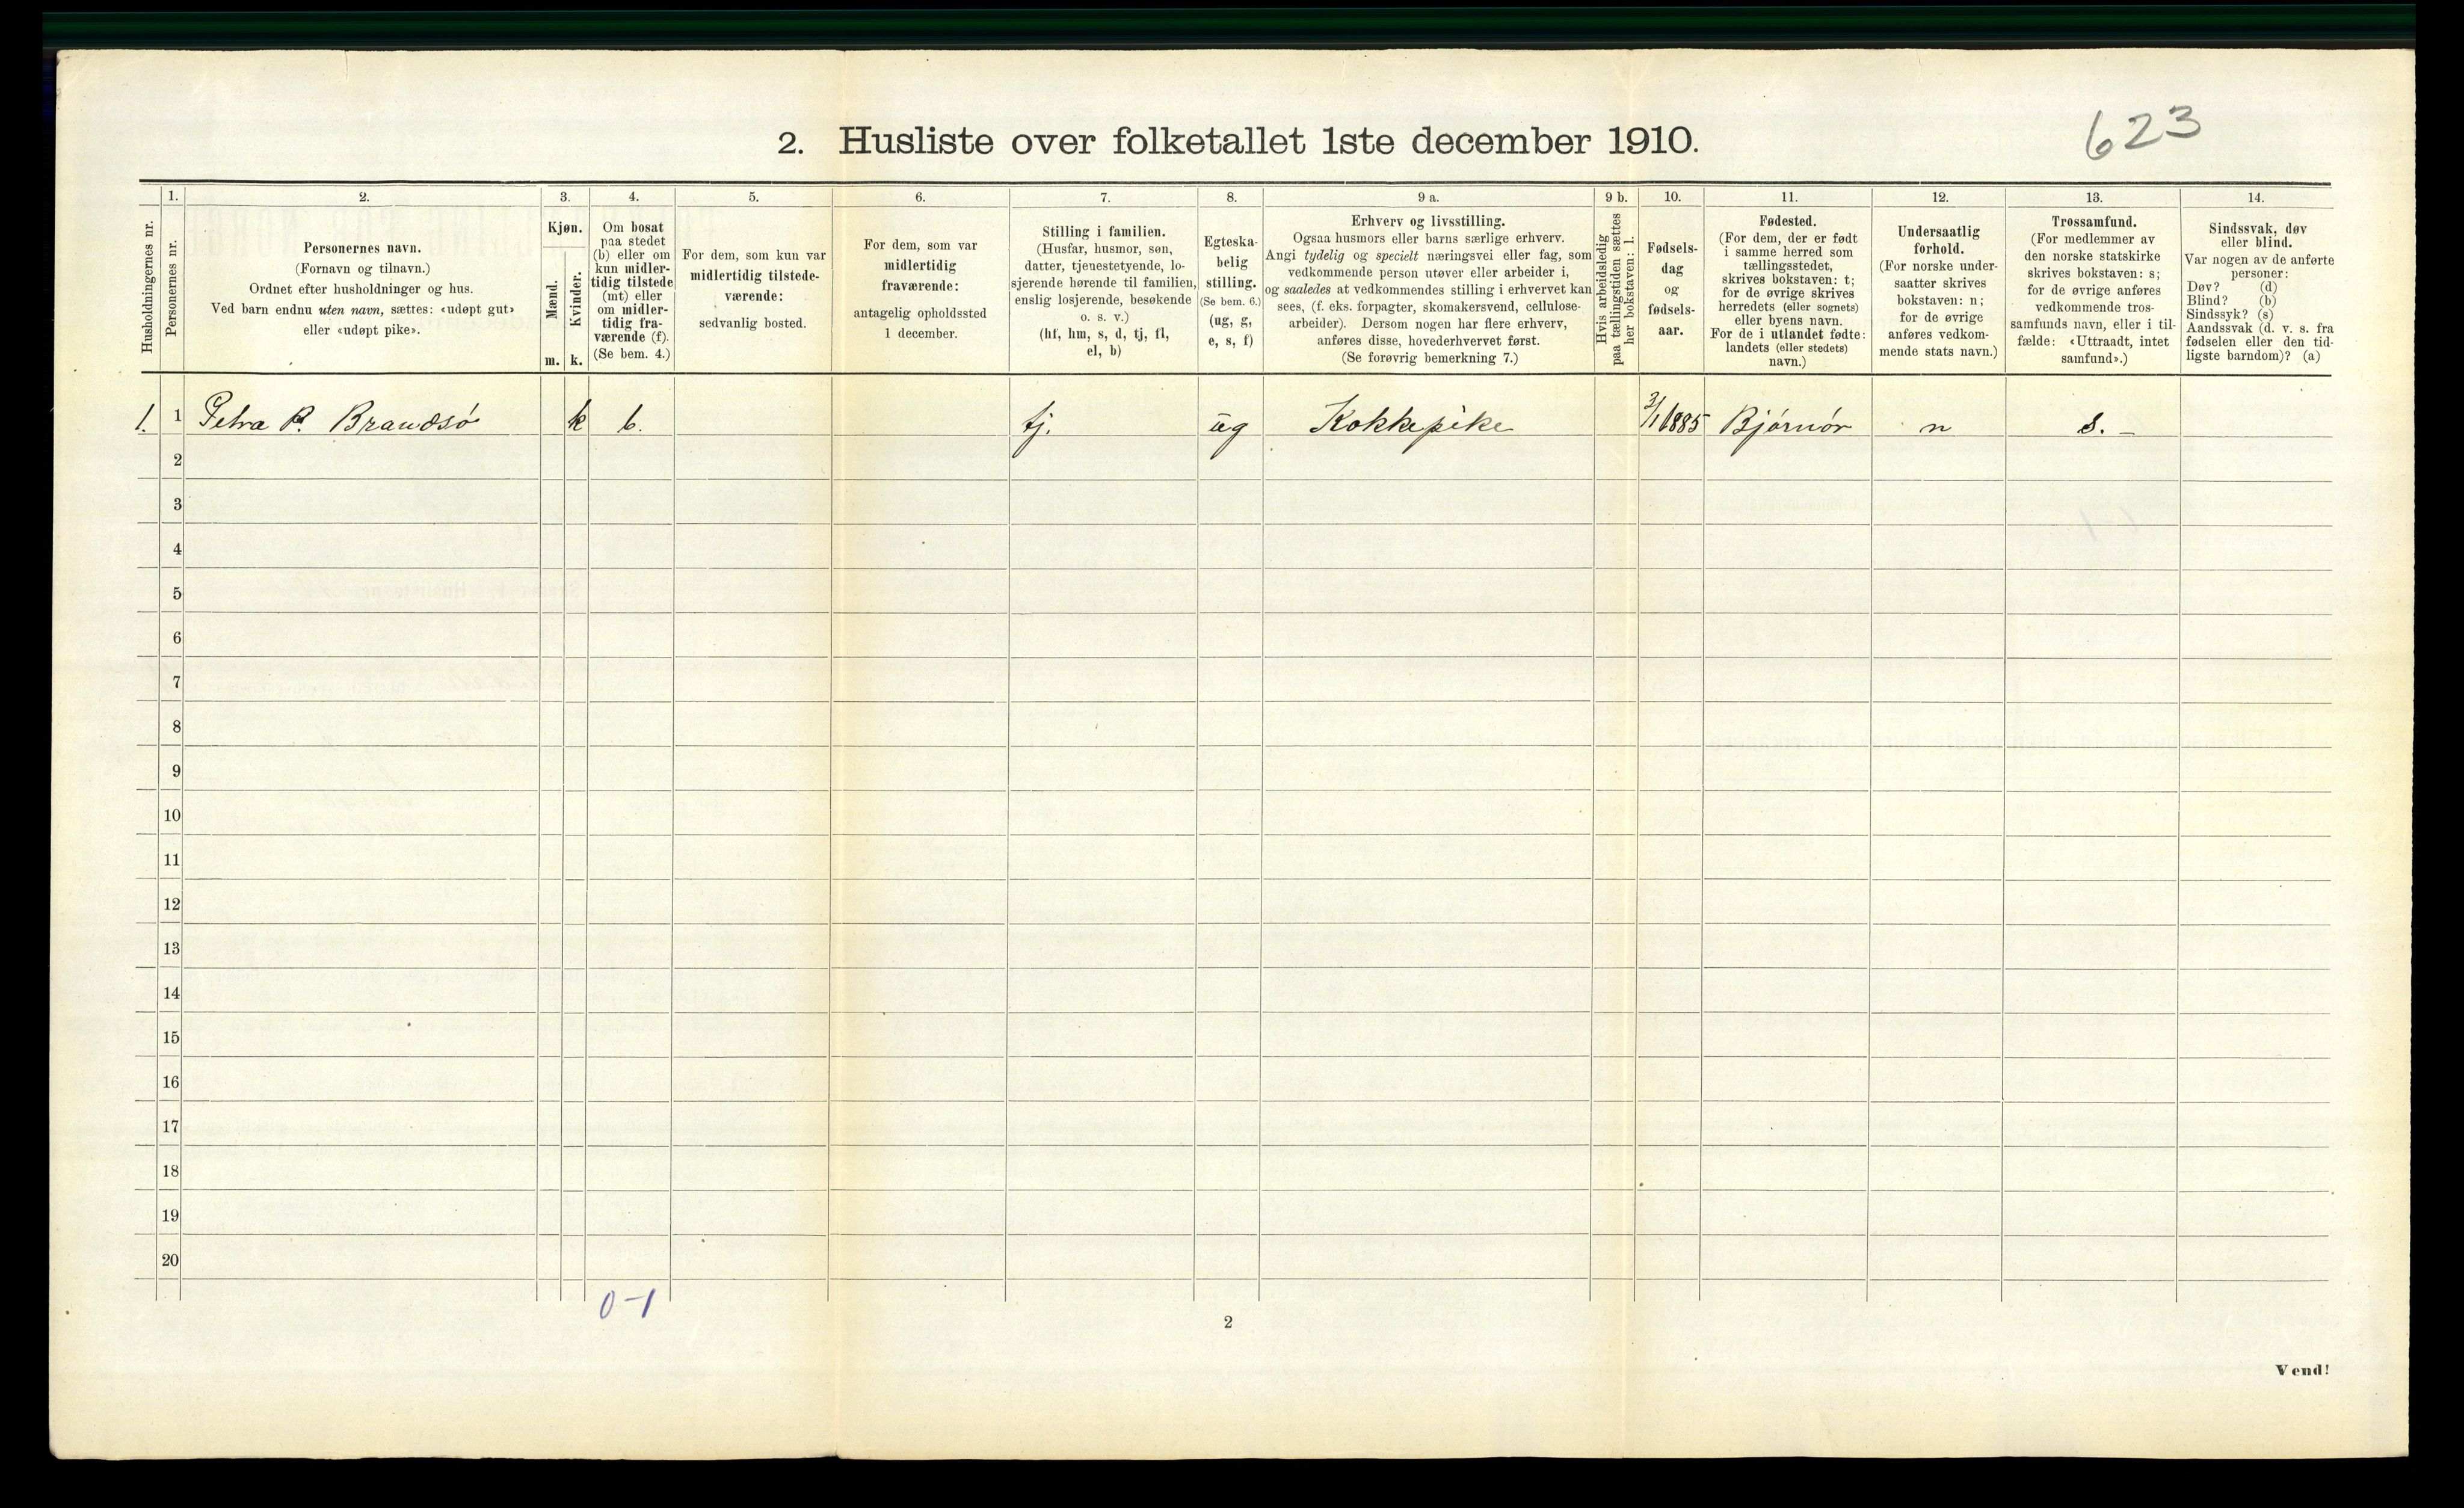 623
2. Husliste over folketallet 1ste december 1910.
Husholdningernes nr.
1.
Personernes nr.
2.
Personernes navn.
(Fornavn og tilnavn.)
Ordnet efter husholdninger og hus.
Ved barn endnu uten navn, sættes: «udøpt gut»
eller «udøpt pike».
3.
Kjøn.
Mænd.
m.
Kvinder.
k.
4.
Om bosat
paa stedet
(b) eller om
kun midler-
tidig tilstede
(mt) eller
om midler-
tidig fra-
værende (f).
(Se bem. 4.)
5.
For dem, som kun var
midlertidig tilstede-
værende:
sedvanlig bosted.
6.
For dem, som var
midlertidig
fraværende:
antagelig opholdssted
1 december.
7.
Stilling i familien.
(Husfar, husmor, søn,
datter, tjenestetyende, lo-
sjerende hørende til familien,
enslig losjerende, besøkende
o. s. v.)
(hf, hm, s, d, tj, fl,
el, b)
8.
Egteska-
belig
stilling.
(Se bem. 6.)
(ug, g,
e, s, f)
9 a.
Erhverv og livsstilling.
Ogsaa husmors eller barns særlige erhverv.
Angi tydelig og specielt næringsvei eller fag, som
vedkommende person utøver eller arbeider i,
og saaledes at vedkommendes stilling i erhvervet kan
sees, (f. eks. forpagter, skomakersvend, cellulose-
arbeider). Dersom nogen har flere erhverv,
anføres disse, hovederhvervet først.
(Se forøvrig bemerkning 7.)
9 b.
Hvis arbeidsledig
paa tællingstiden sættes
her bokstaven: l.
10.
Fødsels-
dag
og
fødsels-
aar.
11.
Fødested.
(For dem, der er født
i samme herred som
tællingsstedet,
skrives bokstaven: t;
for de øvrige skrives
herredets (eller sognets)
eller byens navn.
For de i utlandet fødte:
landets (eller stedets)
navn.)
12.
Undersaatlig
forhold.
(For norske under-
saatter skrives
bokstaven: n;
for de øvrige
anføres vedkom-
mende stats navn.)
13.
Trossamfund.
(For medlemmer av
den norske statskirke
skrives bokstaven: s;
for de øvrige anføres
vedkommende tros-
samfunds navn, eller i til-
fælde: «Uttraadt, intet
samfund».)
14.
Sindssvak, døv
eller blind.
Var nogen av de anførte
personer:
Døv? (d)
Blind? (b)
Sindssyk? (s)
Aandssvak (d. v. s. fra
fødselen eller den tid-
ligste barndom)? (a)
1. 1 Petra P. Brandsø k b. tj. ug Kokkepike 3/1 1885 Bjørnør n s. –
2
3
4
5
6
7
8
9
10
11
12
13
14
15
16
17
18
19
20
0–1
2
Vend!